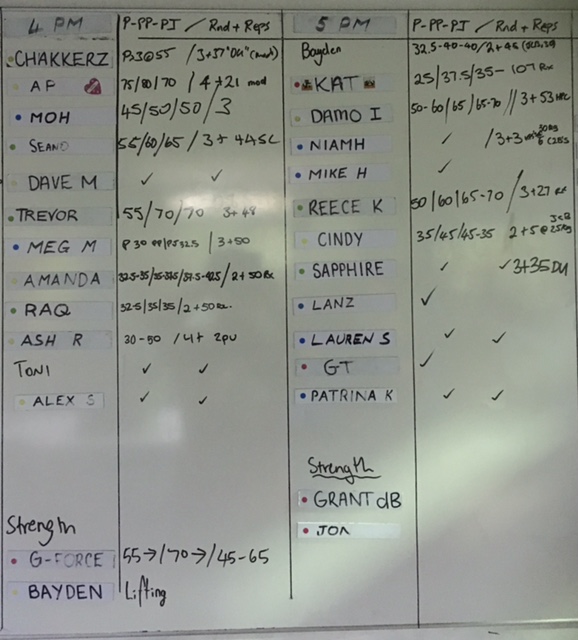 4 PM P-PP-PJ / Rnd + Reps
CHAKKERZ P23@55 / 3+37
AP 75/80/70 / 4+21 mod
MOH 45/50/50/3
SEANO 55/60/65/3+44SC
DAVE M ✓ ✓
TREVOR 55/70/70 3+48
MEG M P 30 PP/PJ 32.5 / 3+50
AMANDA 32.5-35/35-37.5/37.5-42.5/2+50 Rx
RAQ 32.5/35/35/2+50 Rx.
ASH R 30-50 / 4+ 2pu
TONI ✓ ✓
ALEX S ✓ ✓
Strength
G-FORCE 55→/70→/45-65
BAYDEN Lifting
5 PM P-PP-PJ / Rnd + Reps
Bayden 32.5-40-40/2+46
KAT 25/37.5/35- 107 Rx
DAMO I 50-60/65/65-70 // 3+53
NIAMH ✓ / 3+3
MIKE H ✓
REECE K 50/60/65-70 / 3+27 Rx
CINDY 35/45/45-35 2+5@25kg
SAPPHIRE ✓ ✓3+35DU
LANZ ✓
LAUREN S ✓ ✓
GT ✓
PATRINA K ✓ ✓
Strength
GRANT dB
JON